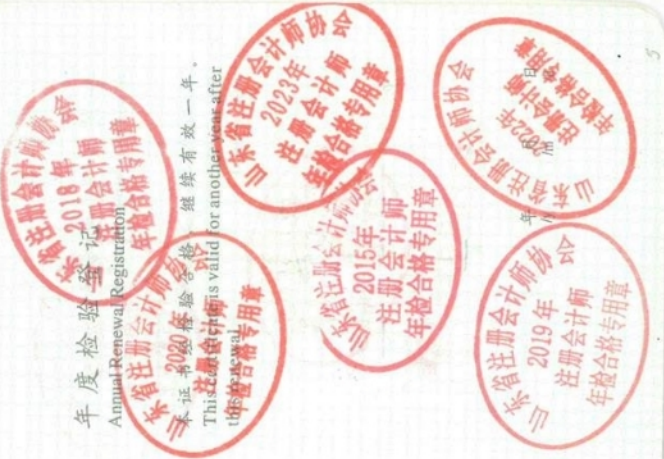 年度检验登记
Annual Renewal Registration
本证书经检验合格，继续有效一年。
This certificate is valid for another year after
this renewal.
年 月 日
山东省注册会计师协会
2018年
注册会计师
年检合格专用章
山东省注册会计师协会
2020年
注册会计师
年检合格专用章
山东省注册会计师协会
2023年
注册会计师
年检合格专用章
山东省注册会计师协会
2015年
注册会计师
年检合格专用章
山东省注册会计师协会
2022年
注册会计师
年检合格专用章
山东省注册会计师协会
2019年
注册会计师
年检合格专用章
5